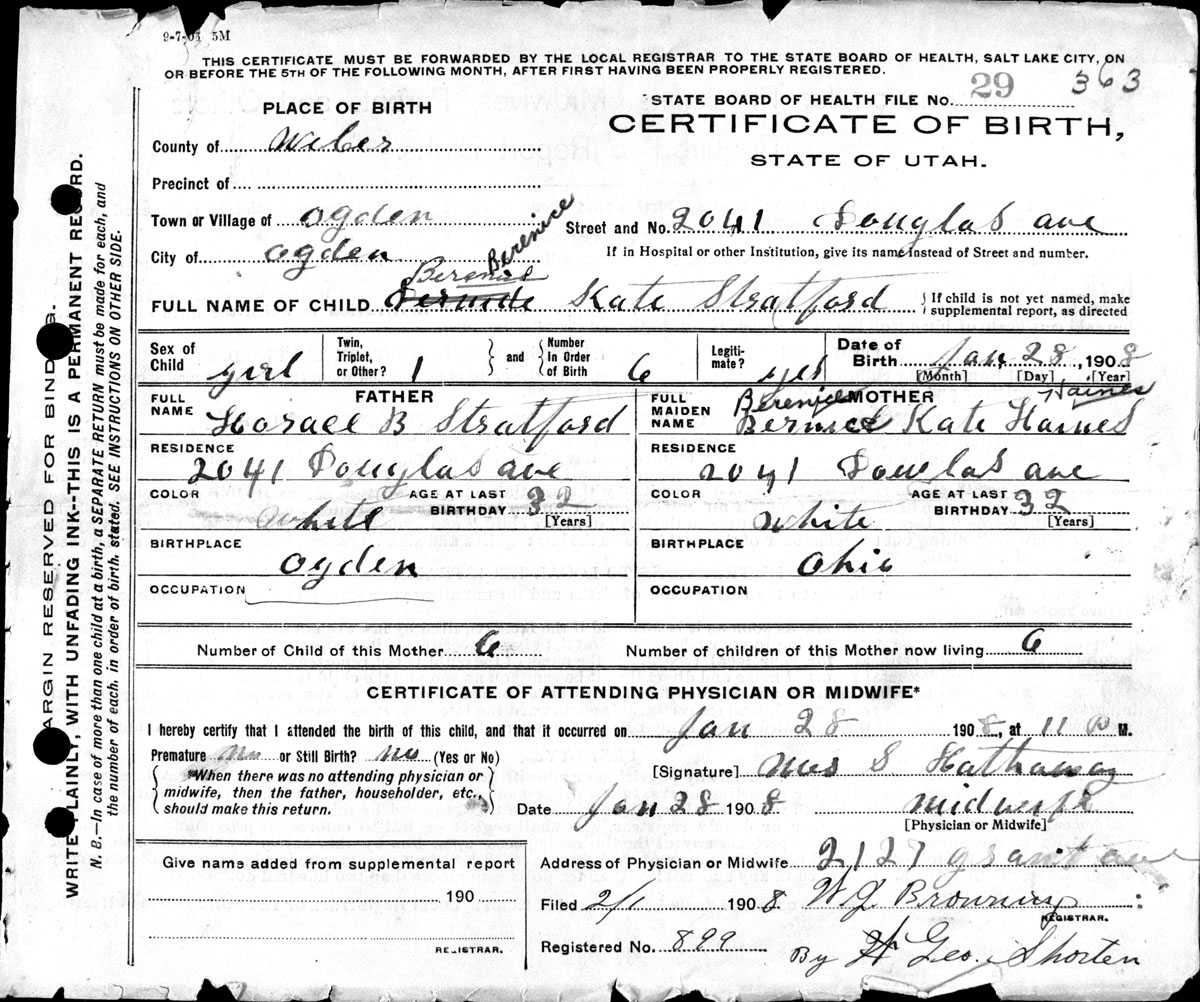 9-7-05 5M
THIS CERTIFICATE MUST BE FORWARDED BY THE LOCAL REGISTRAR TO THE STATE BOARD OF HEALTH, SALT LAKE CITY, ON
OR BEFORE THE 5TH OF THE FOLLOWING MONTH, AFTER FIRST HAVING BEEN PROPERLY REGISTERED.
PLACE OF BIRTH
STATE BOARD OF HEALTH FILE No. 29 363
CERTIFICATE OF BIRTH,
STATE OF UTAH.
County of Weber
Precinct of
Town or Village of Ogden
Street and No. 2041 Douglas ave
City of Ogden
If in Hospital or other Institution, give its name instead of Street and number.
Berenice Berenice
FULL NAME OF CHILD Kate Stratford
If child is not yet named, make
supplemental report, as directed
Sex of Child girl
Twin, Triplet, or Other? 1
and Number In Order of Birth 6
Legitimate? yes
Date of Birth Jan 28, 1908
[Month] [Day] [Year]
FATHER
FULL NAME Horace B Stratford
RESIDENCE 2041 Douglas ave
COLOR White
AGE AT LAST BIRTHDAY 32 [Years]
BIRTHPLACE Ogden
OCCUPATION
MOTHER
Berenice Haines
FULL MAIDEN NAME Bernice Kate Haines
RESIDENCE 2041 Douglas ave
COLOR White
AGE AT LAST BIRTHDAY 32 [Years]
BIRTHPLACE Ohio
OCCUPATION
Number of Child of this Mother 6
Number of children of this Mother now living 6
CERTIFICATE OF ATTENDING PHYSICIAN OR MIDWIFE*
I hereby certify that I attended the birth of this child, and that it occurred on Jan 28 1908, at 11 P M.
Premature No or Still Birth? no (Yes or No)
*When there was no attending physician or
midwife, then the father, householder, etc.,
should make this return.
[Signature] Mrs S. Hathaway
Date Jan 28 1908 midwife
[Physician or Midwife]
Give name added from supplemental report
190
REGISTRAR.
Address of Physician or Midwife 2127 grant ave
Filed 2/1 1908 W. J. Browning
REGISTRAR.
Registered No. 899
By H Geo. Shorten
MARGIN RESERVED FOR BINDING.
WRITE PLAINLY, WITH UNFADING INK--THIS IS A PERMANENT RECORD.
N. B.—In case of more than one child at a birth, a SEPARATE RETURN must be made for each, and
the number of each, in order of birth, stated. SEE INSTRUCTIONS ON OTHER SIDE.